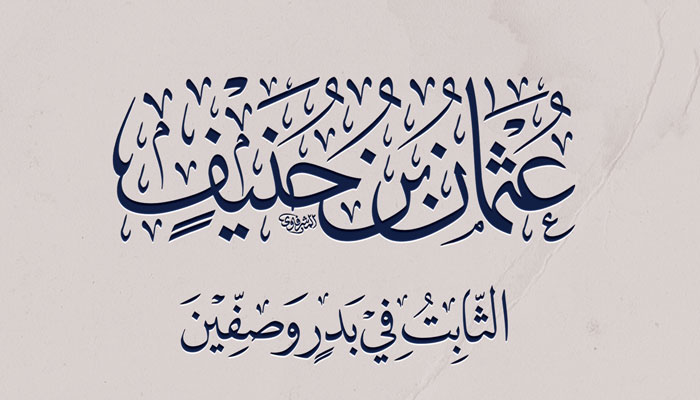 عُثْمَانُ بْنُ حُنَيْفٍ
الشرفاوي
الثَّابِتُ فِي بَدْرٍ وَصِفِّيْنَ